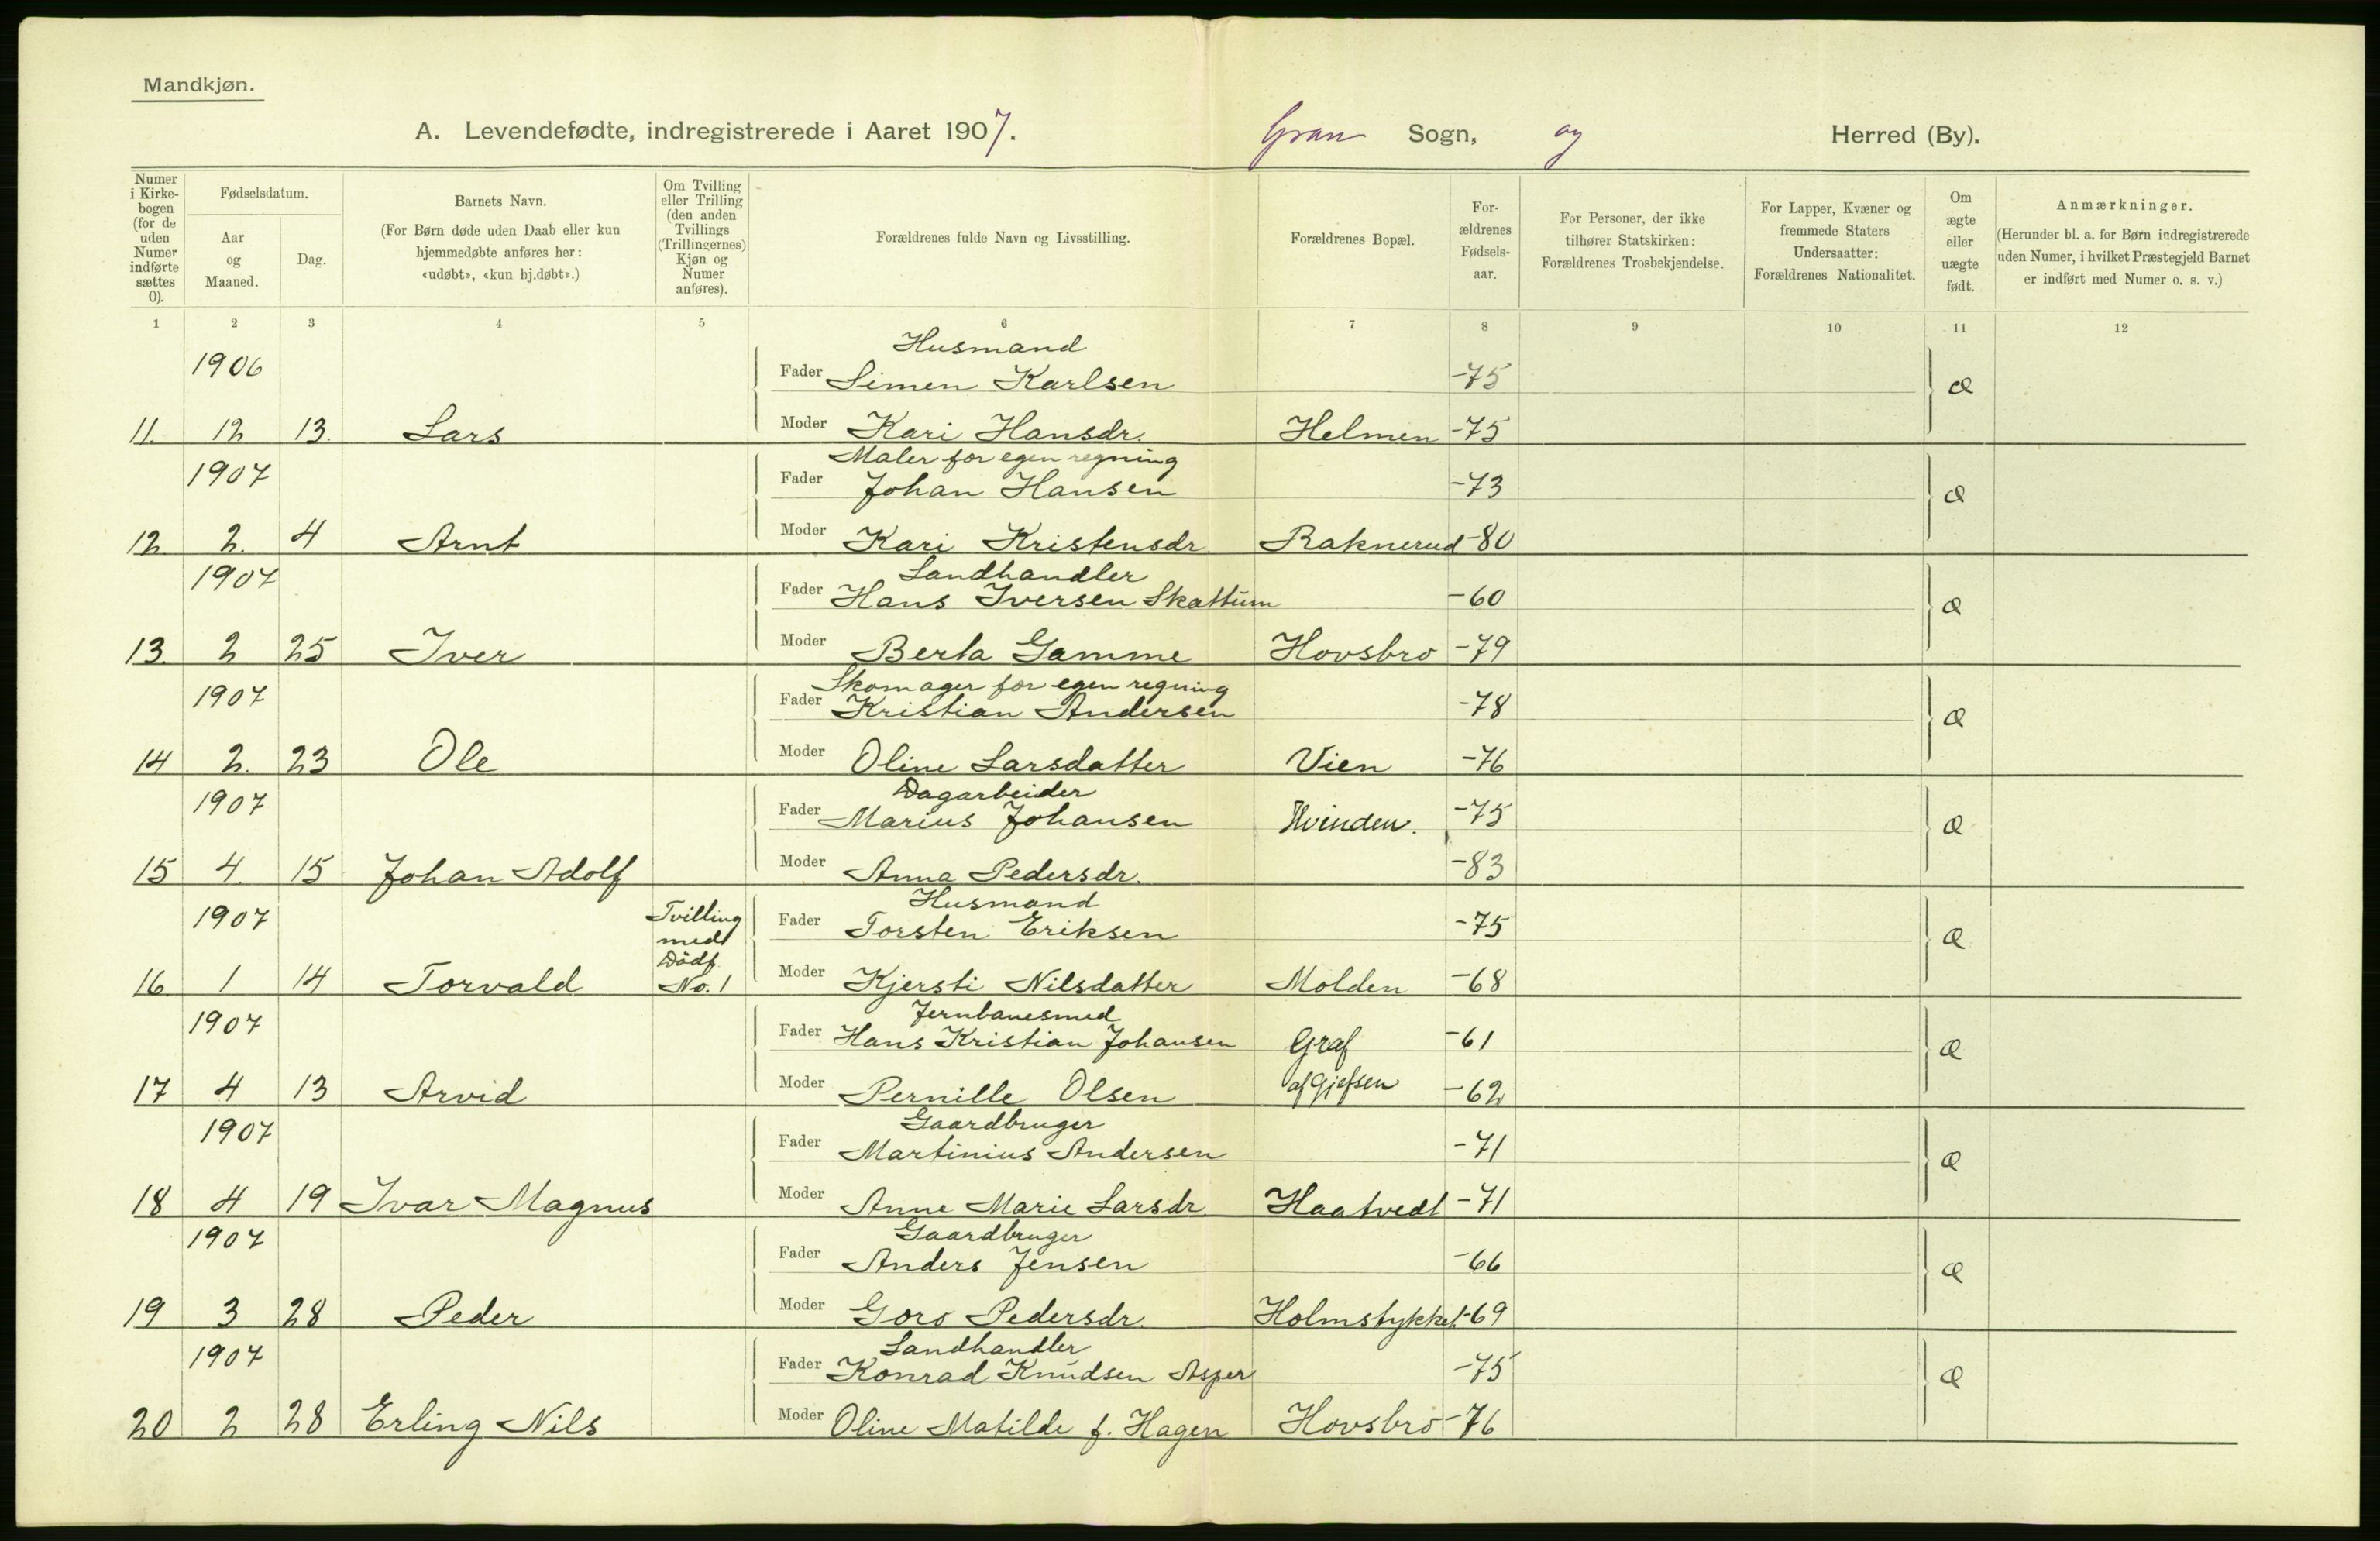 Mandkjøn.
A. Levendefødte, indregistrerede i Aaret 1907. Gran Sogn, og Herred (By).
Numer i Kirkebogen (for de uden Numer indførte sættes 0).
Fødselsdatum.
Aar og Maaned.
Dag.
Barnets Navn.
(For Børn døde uden Daab eller kun hjemmedøbte anføres her: «udøbt», «kun hj.døbt».)
Om Tvilling eller Trilling (den anden Tvillings (Trillingernes) Kjøn og Numer anføres).
Forældrenes fulde Navn og Livsstilling.
Forældrenes Bopæl.
For-ældrenes Fødsels-aar.
For Personer, der ikke tilhører Statskirken: Forældrenes Trosbekjendelse.
For Lapper, Kvæner og fremmede Staters Undersaatter: Forældrenes Nationalitet.
Om ægte eller uægte født.
Anmærkninger.
(Herunder bl. a. for Børn indregistrerede uden Numer, i hvilket Præstegjeld Barnet er indført med Numer o. s. v.)
1 2 3 4 5 6 7 8 9 10 11 12
Husmand
1906 Fader Simen Karlsen -75 Æ
11. 12 13. Lars Moder Kari Hansdr. Helmen -75
Maler for egen regning
1907 Fader Johan Hansen -73 Æ
12 2. 4 Arnt Moder Kari Kristensdr. Raknerud -80
Landhandler
1907 Fader Hans Iversen Skattum -60 Æ
13. 2 25 Iver Moder Berta Gamme Hovsbro -79
Skomager for egen regning
1907 Fader Kristian Andersen -78 Æ
14 2. 23 Ole Moder Oline Larsdatter Vien -76
Dagarbeider
1907 Fader Marius Johansen Hvinden. -75 Æ
15 4. 15 Johan Adolf Moder Anna Pedersdr. -83
Husmand
1907 Tvilling med Fader Torsten Eriksen -75 Æ
16. 1 14 Torvald Dødf. No. 1 Moder Kjersti Nilsdatter Molden -68
Jernbanesmed
1907 Fader Hans Kristian Johansen Graf -61 Æ
17 4 13 Arvid Moder Pernille Olsen af Gjefsen -62
Gaardbruger
1907 Fader Martinius Andersen -71 Æ
18 4 19 Ivar Magnus Moder Anne Marie Larsdr. Haatvedt -71
Gaardbruger
1907 Fader Anders Jensen -66 Æ
19 3 28 Peder Moder Goro Pedersdr. Holmstykket -69
Landhandler
1907 Fader Konrad Knudsen Asper -75 Æ
20 2 28 Erling Nils Moder Oline Matilde f. Hagen Hovsbro -76